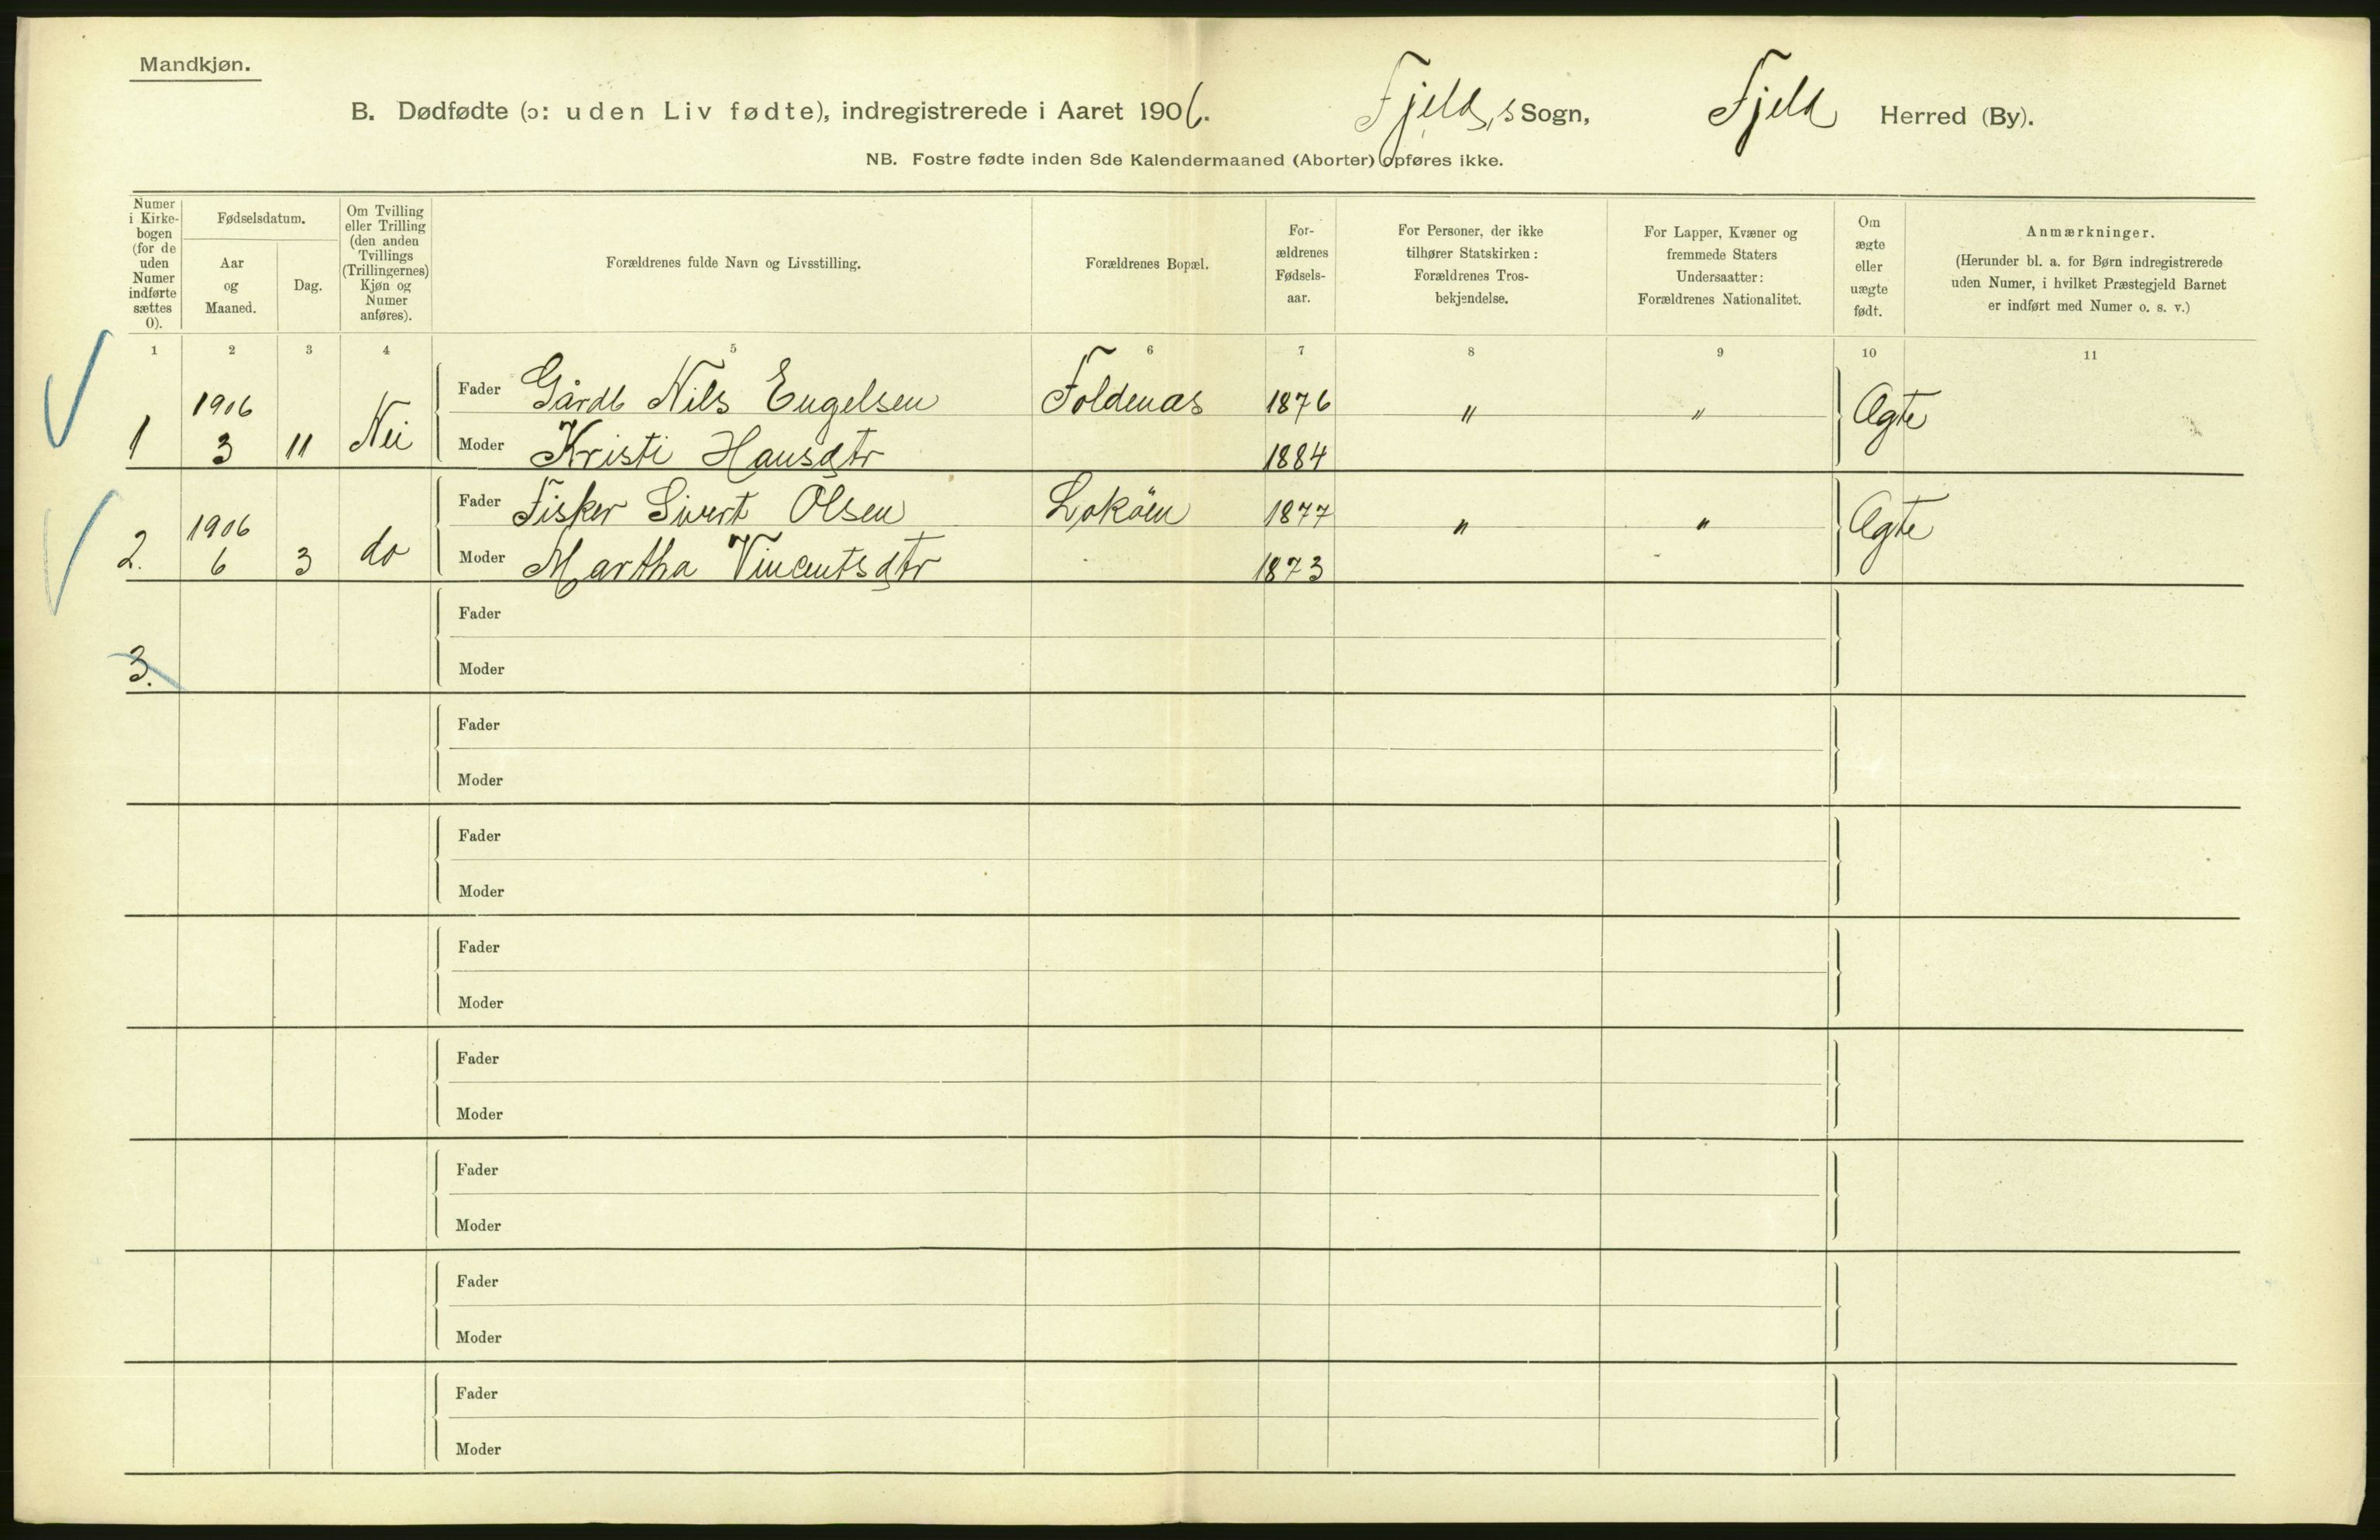 Mandkjøn.
B. Dødfødte (ɔ: uden Liv fødte), indregistrerede i Aaret 1906. Fjelds Sogn, Fjeld Herred (By).
NB. Fostre fødte inden 8de Kalendermaaned (Aborter) opføres ikke.
Numer i Kirke-bogen (for de uden Numer indførte sættes 0).
Fødselsdatum.
Aar og Maaned.
Dag.
Om Tvilling eller Trilling (den anden Tvillings (Trillingernes) Kjøn og Numer anføres).
Forældrenes fulde Navn og Livsstilling.
Forældrenes Bopæl.
For-ældrenes Fødsels-aar.
For Personer, der ikke tilhører Statskirken: Forældrenes Tros-bekjendelse.
For Lapper, Kvæner og fremmede Staters Undersaatter: Forældrenes Nationalitet.
Om ægte eller uægte født.
Anmærkninger.
(Herunder bl. a. for Børn indregistrerede uden Numer, i hvilket Præstegjeld Barnet er indført med Numer o. s. v.)
1 2 3 4 5 6 7 8 9 10 11
1 1906 3 11 Nei Fader Gårdb Nils Engelsen Foldenæs 1876 " " Ægte
Moder Kristi Hansdtr 1884
2. 1906 6 3 do Fader Fisker Sivert Olsen Lokøen 1877 " " Ægte
Moder Martha Vincentsdtr 1873
Fader
3. Moder
Fader
Moder
Fader
Moder
Fader
Moder
Fader
Moder
Fader
Moder
Fader
Moder
Fader
Moder